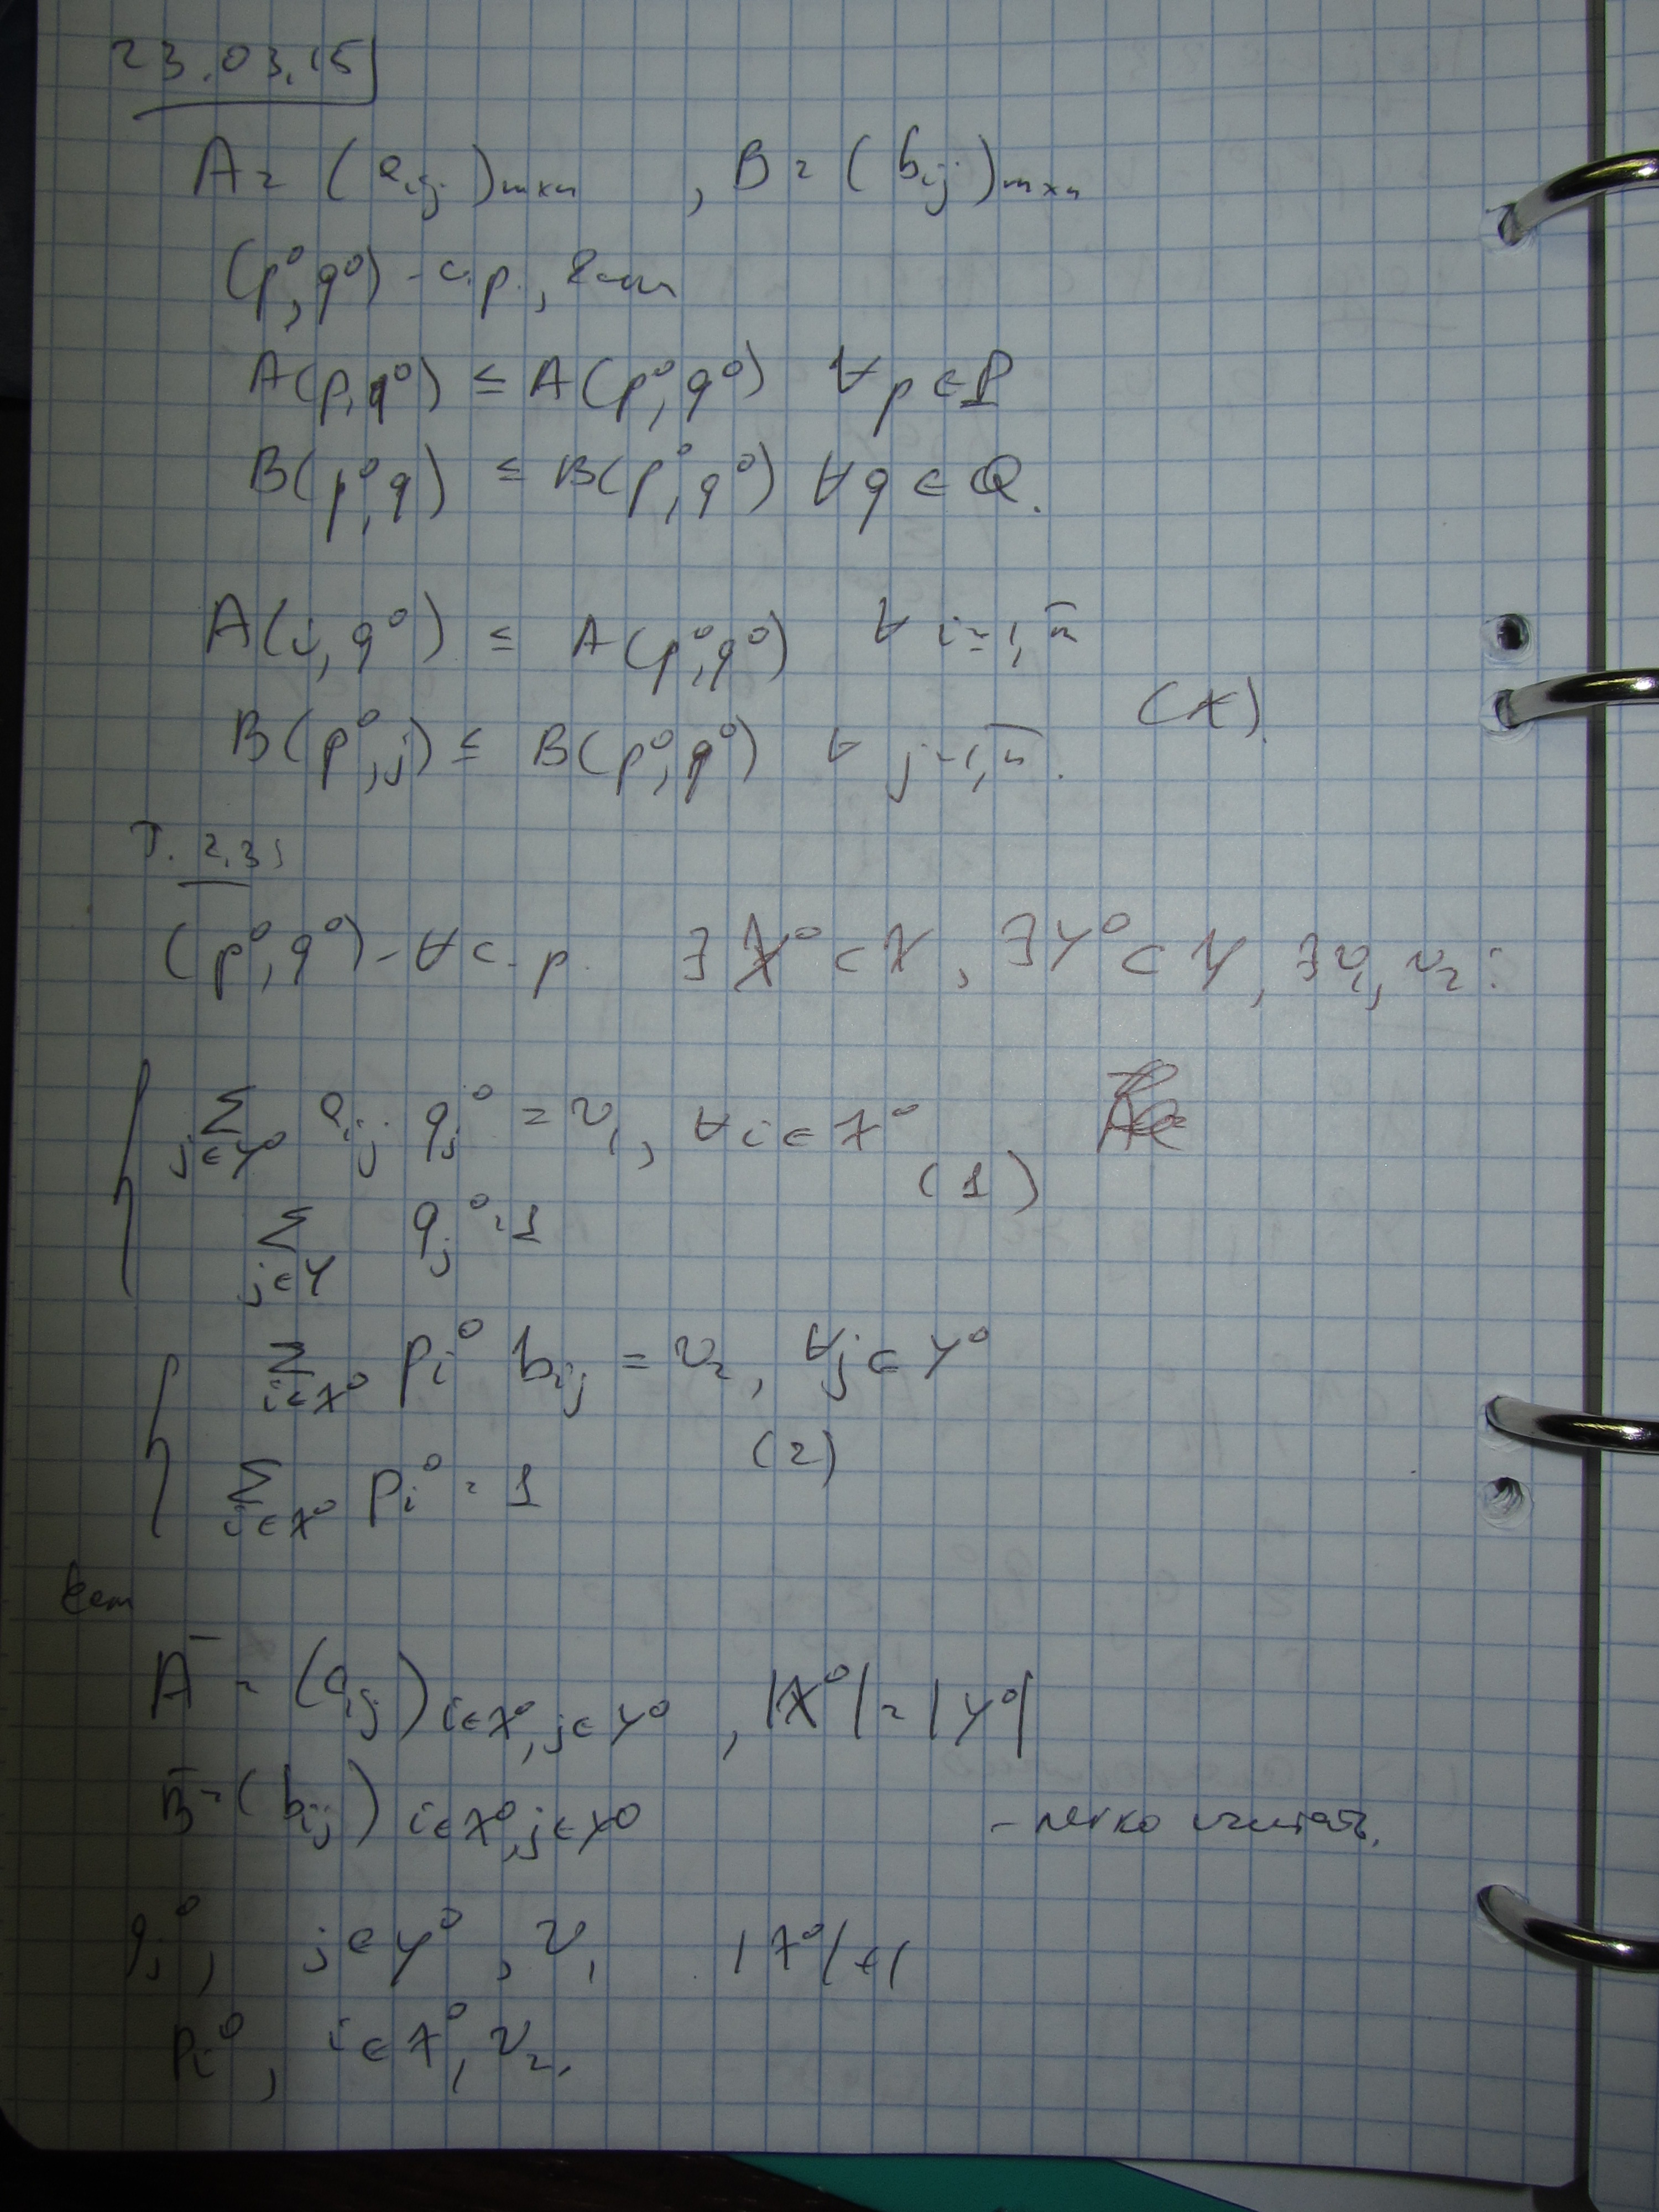 23.03.15
A = (a_ij)_m×n , B = (b_ij)_m×n
(p⁰, q⁰) - с.р., если
A(p, q⁰) ≤ A(p⁰, q⁰) ∀ p ∈ P
B(p⁰, q) ≤ B(p⁰, q⁰) ∀ q ∈ Q.
A(i, q⁰) ≤ A(p⁰, q⁰) ∀ i = 1, m̄
(*).
B(p⁰, j) ≤ B(p⁰, q⁰) ∀ j = 1, n̄.
T. 2.3
(p⁰, q⁰) - ∀ с.р. ∃ X⁰ ⊂ X, ∃ Y⁰ ⊂ Y, ∃ v₁, v₂ :
∑_{j∈Y⁰} a_ij q_j⁰ = v₁, ∀ i ∈ X⁰
(1)
∑_{j∈Y} q_j⁰ = 1
∑_{i∈X⁰} p_i⁰ b_ij = v₂, ∀ j ∈ Y⁰
(2)
∑_{i∈X⁰} p_i⁰ = 1
Если
Ā = (a_ij)_{i∈X⁰, j∈Y⁰} , |X⁰| = |Y⁰|
B̄ = (b_ij)_{i∈X⁰, j∈Y⁰} - легко считать.
q_j⁰, j ∈ Y⁰, v₁ |X⁰|+1
p_i⁰, i ∈ X⁰, v₂.